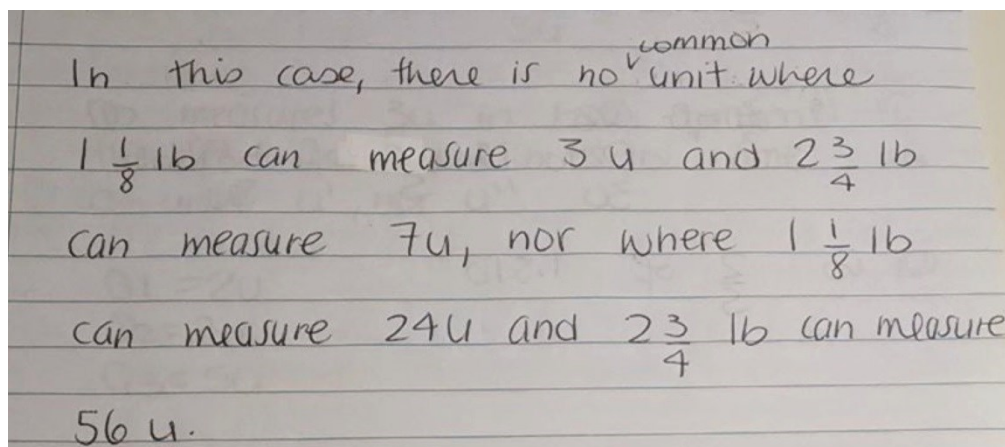 In this case, there is no common unit where
1 1/8 lb can measure 3 u and 2 3/4 lb
can measure 7u, nor where 1 1/8 lb
can measure 24u and 2 3/4 lb can measure
56 u.